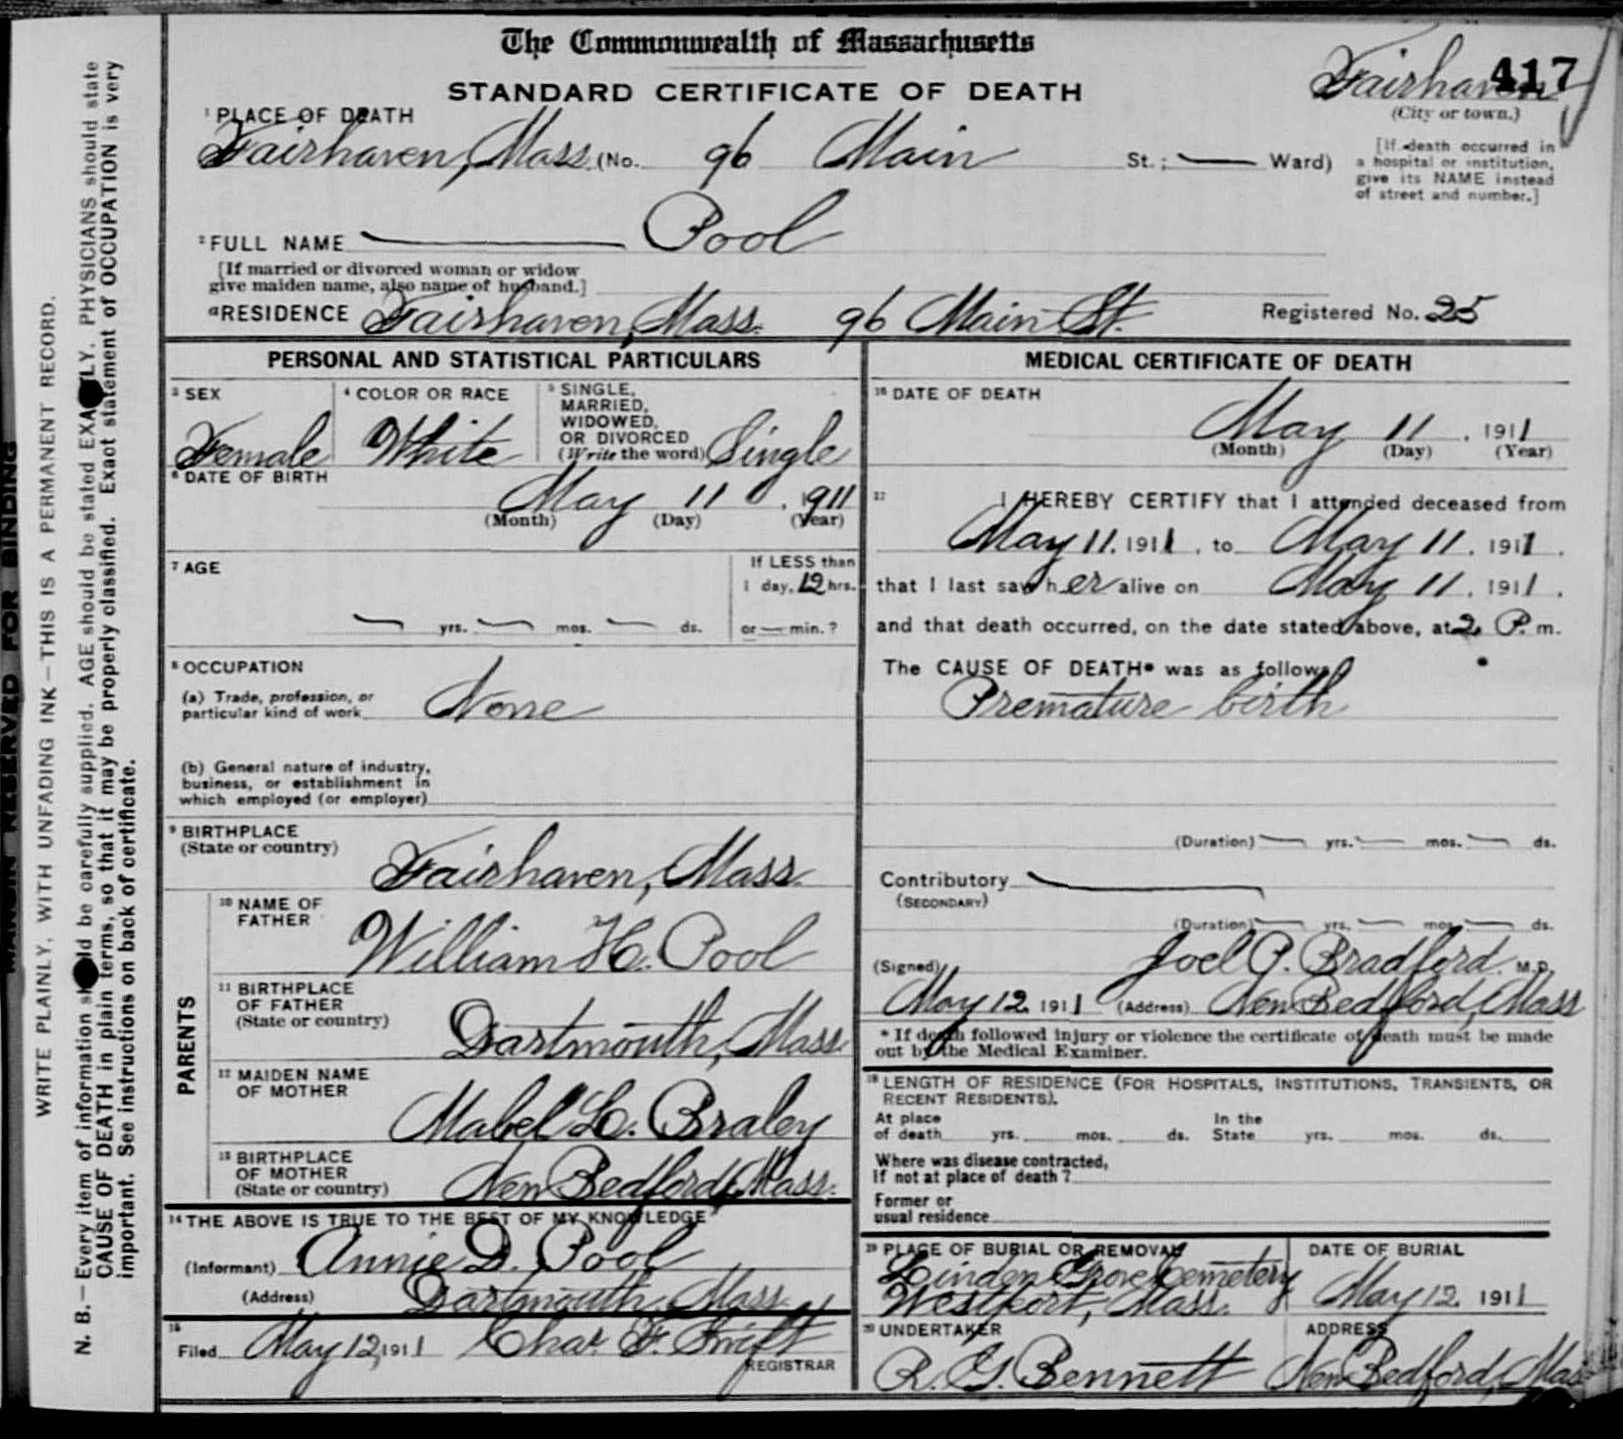 The Commonwealth of Massachusetts
STANDARD CERTIFICATE OF DEATH
Fairhaven
417
(City or town.)
1 PLACE OF DEATH
Fairhaven, Mass. (No. 96 Main St.; — Ward)
[If death occurred in
a hospital or institution,
give its NAME instead
of street and number.]
2 FULL NAME — Pool
[If married or divorced woman or widow
give maiden name, also name of husband.]
a RESIDENCE Fairhaven, Mass. 96 Main St.
Registered No. 25
PERSONAL AND STATISTICAL PARTICULARS
3 SEX
Female
4 COLOR OR RACE
White
5 SINGLE,
MARRIED,
WIDOWED,
OR DIVORCED
(Write the word) Single
6 DATE OF BIRTH
May 11, 1911
(Month) (Day) (Year)
7 AGE
— yrs. — mos. — ds.
If LESS than
1 day, 12 hrs.
or — min.?
8 OCCUPATION
(a) Trade, profession, or
particular kind of work None
(b) General nature of industry,
business, or establishment in
which employed (or employer)
9 BIRTHPLACE
(State or country)
Fairhaven, Mass.
PARENTS
10 NAME OF
FATHER
William H. Pool
11 BIRTHPLACE
OF FATHER
(State or country)
Dartmouth, Mass.
12 MAIDEN NAME
OF MOTHER
Mabel L. Braley
13 BIRTHPLACE
OF MOTHER
(State or country)
New Bedford, Mass.
14 THE ABOVE IS TRUE TO THE BEST OF MY KNOWLEDGE
(Informant) Annie D. Pool
(Address) Dartmouth, Mass.
15
Filed May 12, 1911 Chas. F. Swift
REGISTRAR
MEDICAL CERTIFICATE OF DEATH
16 DATE OF DEATH
May 11, 1911
(Month) (Day) (Year)
17 I HEREBY CERTIFY that I attended deceased from
May 11, 1911, to May 11, 1911.
that I last saw her alive on May 11, 1911.
and that death occurred, on the date stated above, at 2 P. m.
The CAUSE OF DEATH* was as follows:
Premature birth
(Duration) — yrs. — mos. — ds.
Contributory —
(SECONDARY)
(Duration) — yrs. — mos. — ds.
(Signed) Joel P. Bradford M.D.
May 12, 1911 (Address) New Bedford, Mass
* If death followed injury or violence the certificate of death must be made
out by the Medical Examiner.
18 LENGTH OF RESIDENCE (FOR HOSPITALS, INSTITUTIONS, TRANSIENTS, OR
RECENT RESIDENTS).
At place
of death yrs. mos. ds.
In the
State yrs. mos. ds.
Where was disease contracted,
if not at place of death?
Former or
usual residence
19 PLACE OF BURIAL OR REMOVAL
Linden Grove Cemetery
Westport, Mass.
DATE OF BURIAL
May 12, 1911
20 UNDERTAKER
R. G. Bennett
ADDRESS
New Bedford, Mass
MARGIN RESERVED FOR BINDING
WRITE PLAINLY, WITH UNFADING INK—THIS IS A PERMANENT RECORD.
N. B.—Every item of information should be carefully supplied. AGE should be stated EXACTLY. PHYSICIANS should state
CAUSE OF DEATH in plain terms, so that it may be properly classified. Exact statement of OCCUPATION is very
important. See instructions on back of certificate.